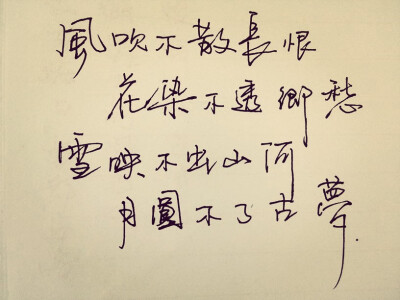 風吹不散長恨
花染不透鄉愁
雪映不出山河
月圓不了古夢